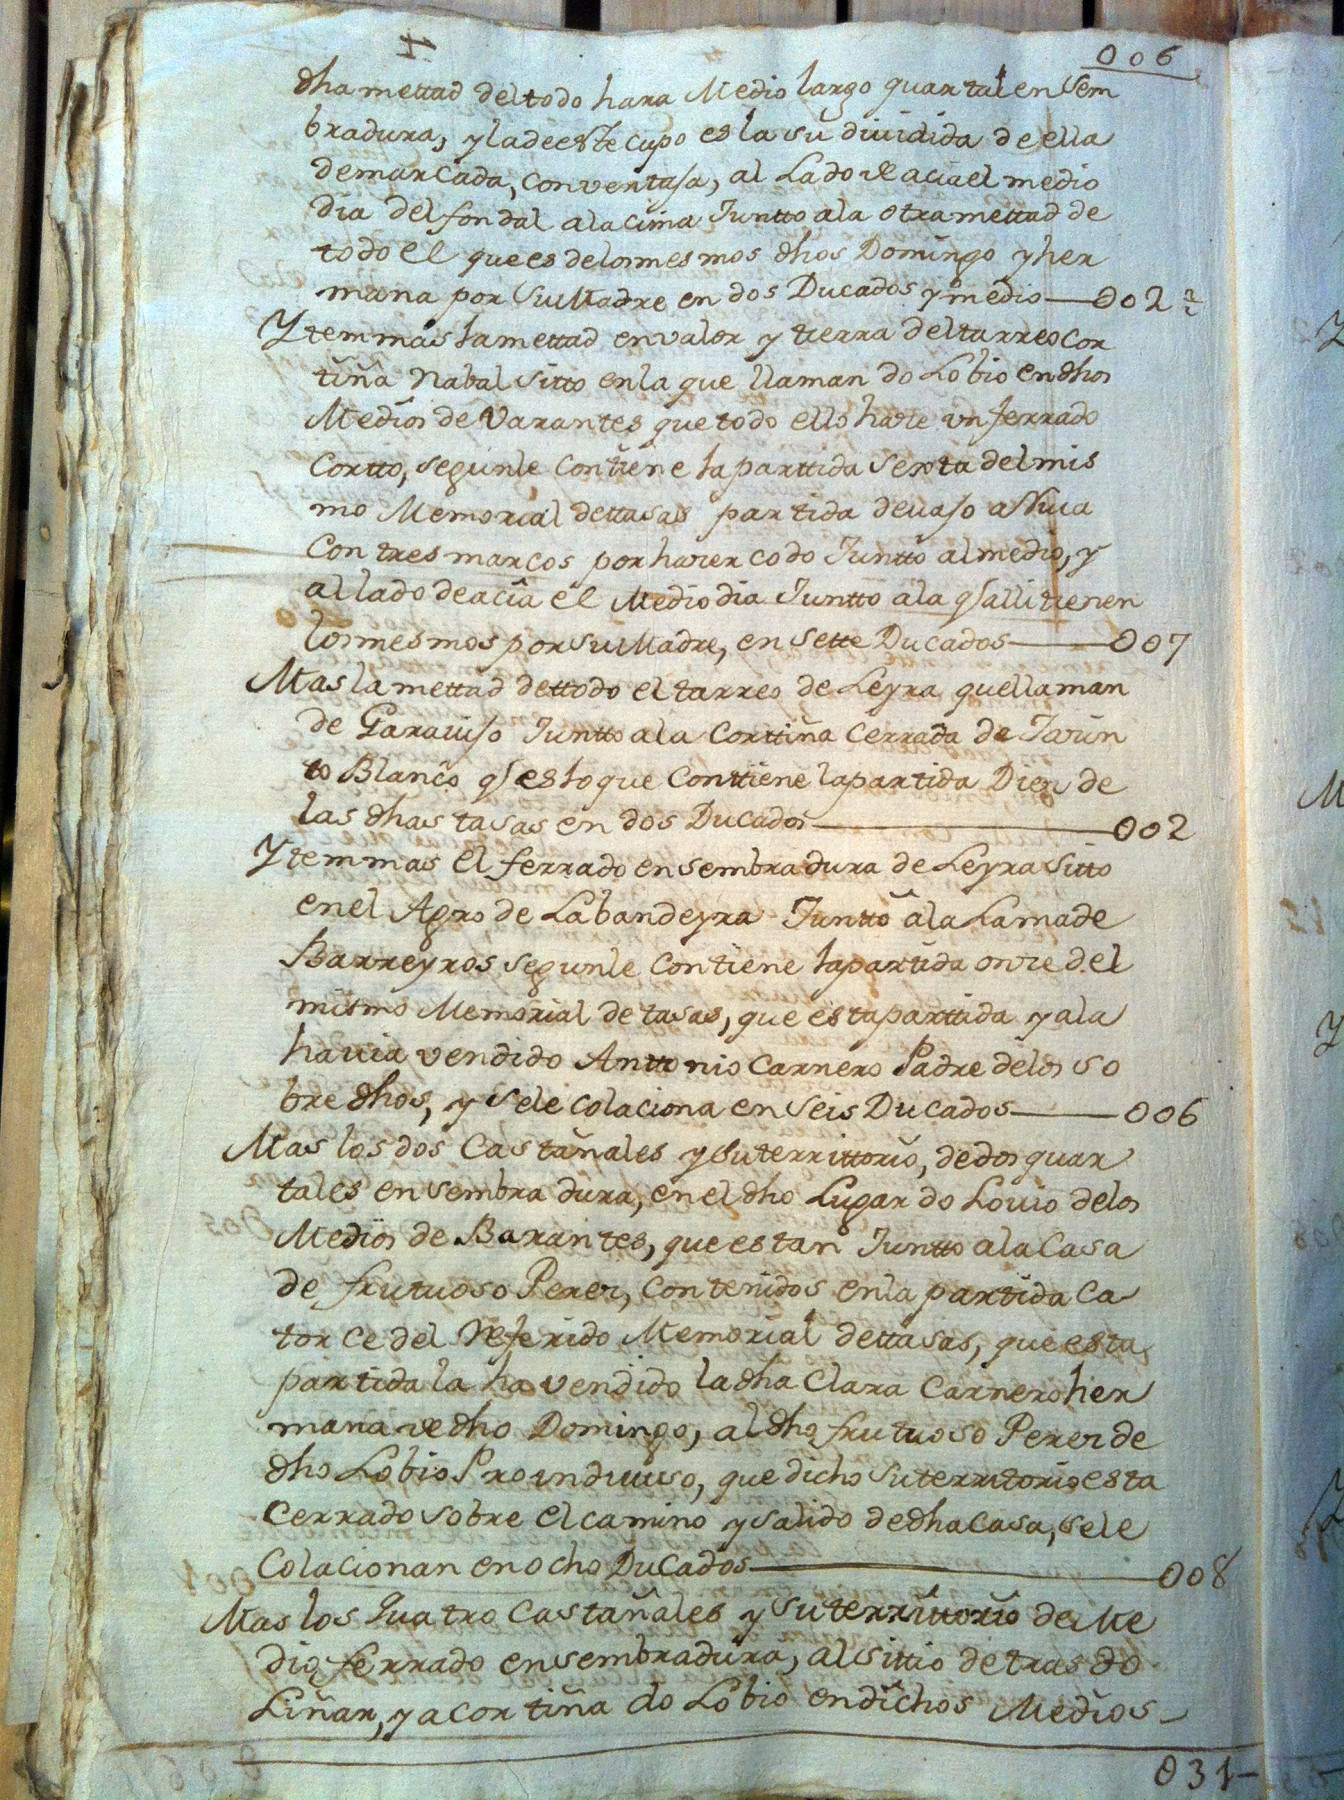 006
dha mettad del todo hara Medio largo quartal en sem
bradura, y la de este cupo es la su diuidida de ella
demarcada, con ventasa, al Lado de acia el medio
dia del fondal a la cima Juntto a la otra mettad de
todo el que es de los mesmos dhos Domingo y her
mana por su Madre en dos Ducados y medio — 002 1/2
Ytem mas la mettad en valor y tierra del tarreo cor
tiña Nabal sitto en la que llaman do Lobio en dhos
Medios de Varantes que todo ello hace un ferrado
cortto, segun le contiene la parttida sexta del mis
mo Memorial dettasas partida de uaso a
con tres marcos por hacer codo Juntto al medio, y
al lado de acia el Medio dia Juntto a la q alli tienen
los mesmos por su Madre, en sette Ducados — 007
Mas la mettad dettodo el tarreo de Leyra que llaman
de Garauiso Juntto a la Corttiña Cerrada de Jacin
to Blanco q es lo que Conttiene la partida Diez de
las dhas tasas en dos Ducados — 002
Ytem mas el ferrado en sembradura de Leyra sitto
en el Agro de Labandeyra Juntto a la Lama de
Barreyros segun le contiene la partida once del
mismo Memorial de tasas, que esta parttida ya la
hauia vendido Anttonio Carnero Padre de los so
bre dhos, y se le colaciona en seis Ducados — 006
Mas los dos Castañales y su territtorio, de dos quar
tales en sembradura, en el dho Lugar do Louio de los
Medios de Barantes, que estan Juntto a la Casa
de frutuoso Perez, contenidos en la partida Ca
torce del Referido Memorial dettasas, que esta
partida la ha vendido la dha Clara Carnero her
mana de dho Domingo, al dho frutuoso Perez de
dho Lobio Proindiuiso, que dicho su territorio esta
Cerrado sobre el camino y salido de dha Casa, se le
Colacionan en ocho Ducados — 008
Mas los quatro Castañales y su territtorio de Me
dio ferrado en sembradura, al sittio detras do
Liñar, y a cortiña do Lobio en dichos Medios
031